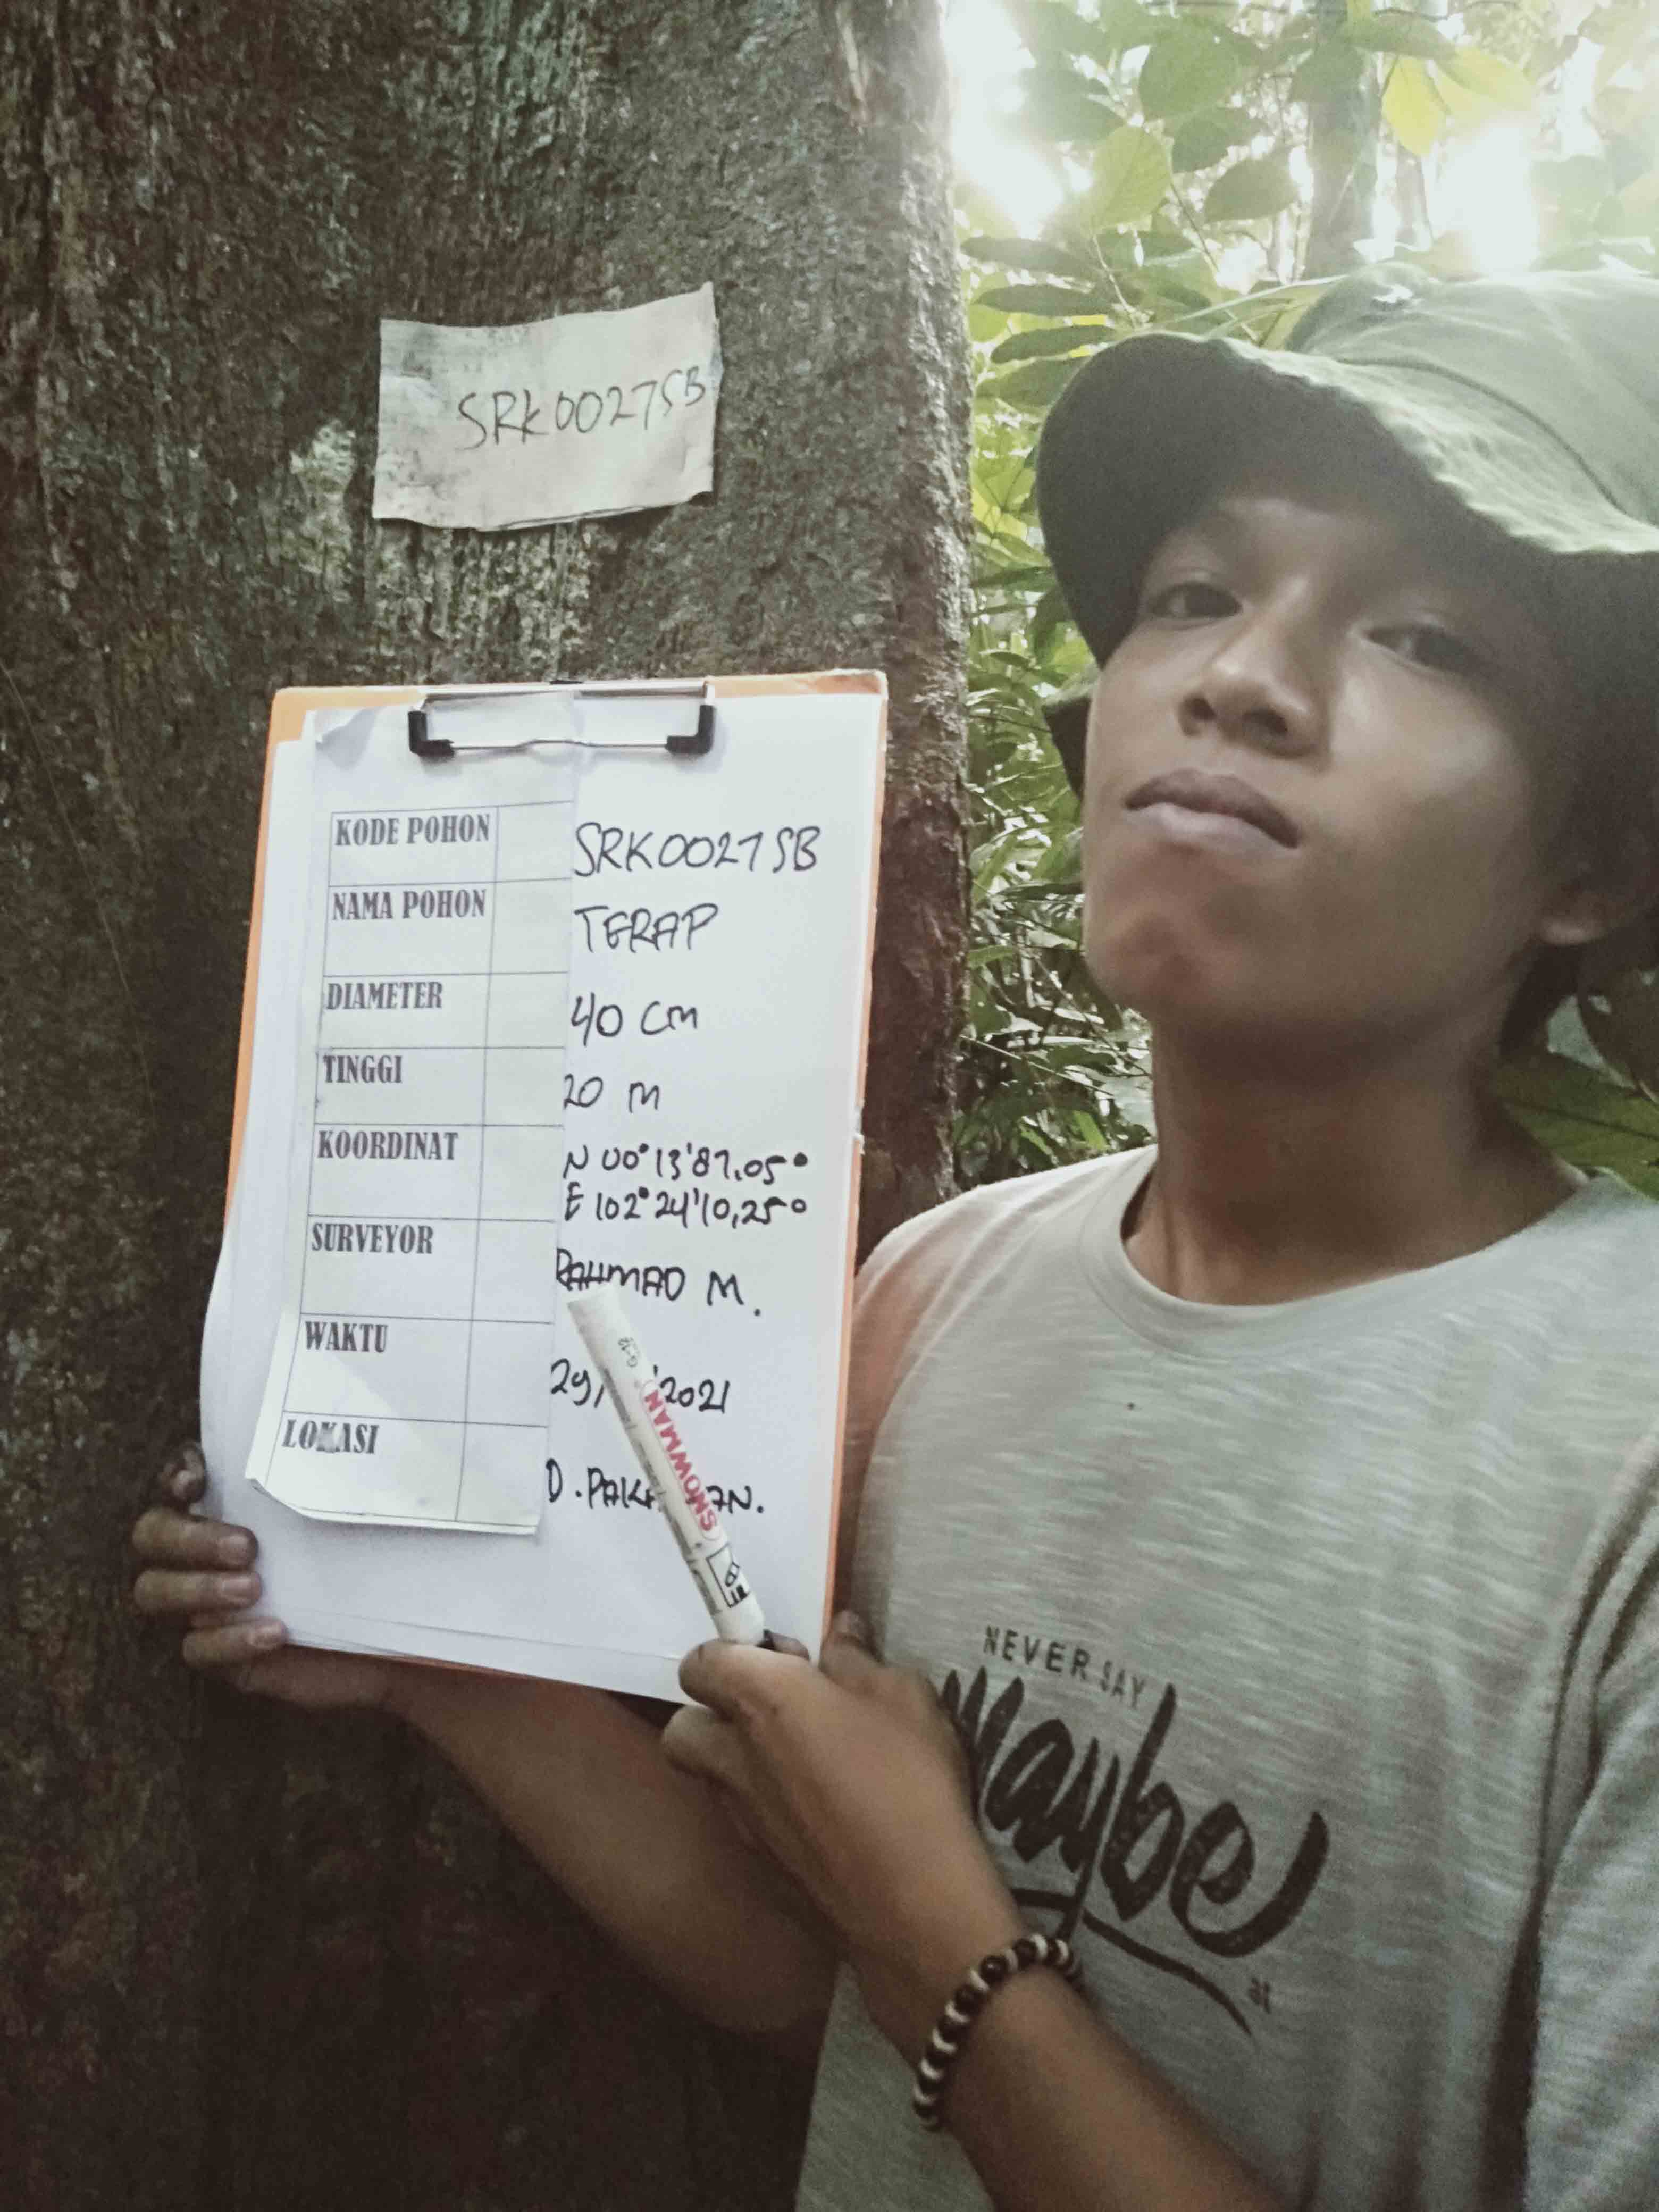 SRK0027SB
KODE POHON SRK0027SB
NAMA POHON TERAP
DIAMETER 40 cm
TINGGI 20 m
KOORDINAT N 00° 13' 87.05°
E 102° 24' 10,25°
SURVEYOR RAHMAD M.
WAKTU 29/ '2021
LOKASI D.
SNOWMAN
G-12
NEVER SAY
Maybe